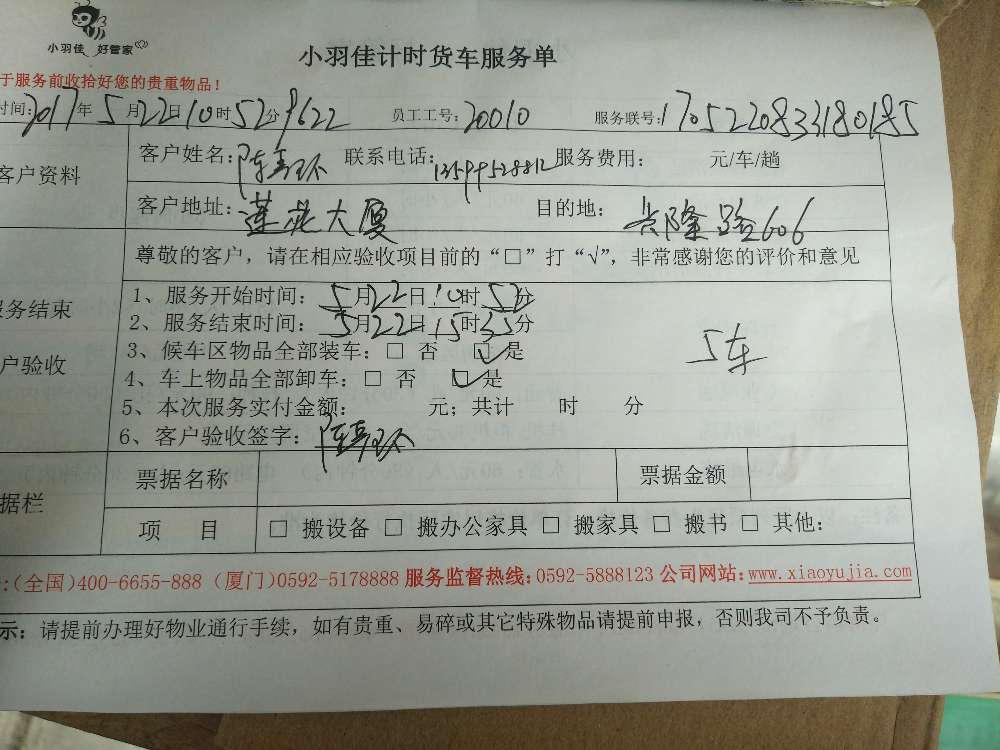 小羽佳 好管家
小羽佳计时货车服务单
于服务前收拾好您的贵重物品!
时间:2017年5月22日10时52分 9622 员工工号:20010 服务联号:1705220833180185
客户资料 客户姓名: 联系电话:13599528812 服务费用: 元/车/趟
客户地址:莲花大厦 目的地: 兴隆路606
尊敬的客户,请在相应验收项目前的“□”打“√”,非常感谢您的评价和意见
1、服务开始时间:5月22日10时52分
服务结束 2、服务结束时间:5月22日15时35分
户验收 3、候车区物品全部装车:□ 否 ☑ 是 5车
4、车上物品全部卸车:□ 否 ☑ 是
5、本次服务实付金额: 元;共计 时 分
6、客户验收签字:
据栏 票据名称 票据金额
项 目 □ 搬设备 □ 搬办公家具 □ 搬家具 □ 搬书 □ 其他:
:(全国)400-6655-888 (厦门)0592-5178888 服务监督热线:0592-5888123 公司网站:www.xiaoyujia.com
示:请提前办理好物业通行手续,如有贵重、易碎或其它特殊物品请提前申报,否则我司不予负责。